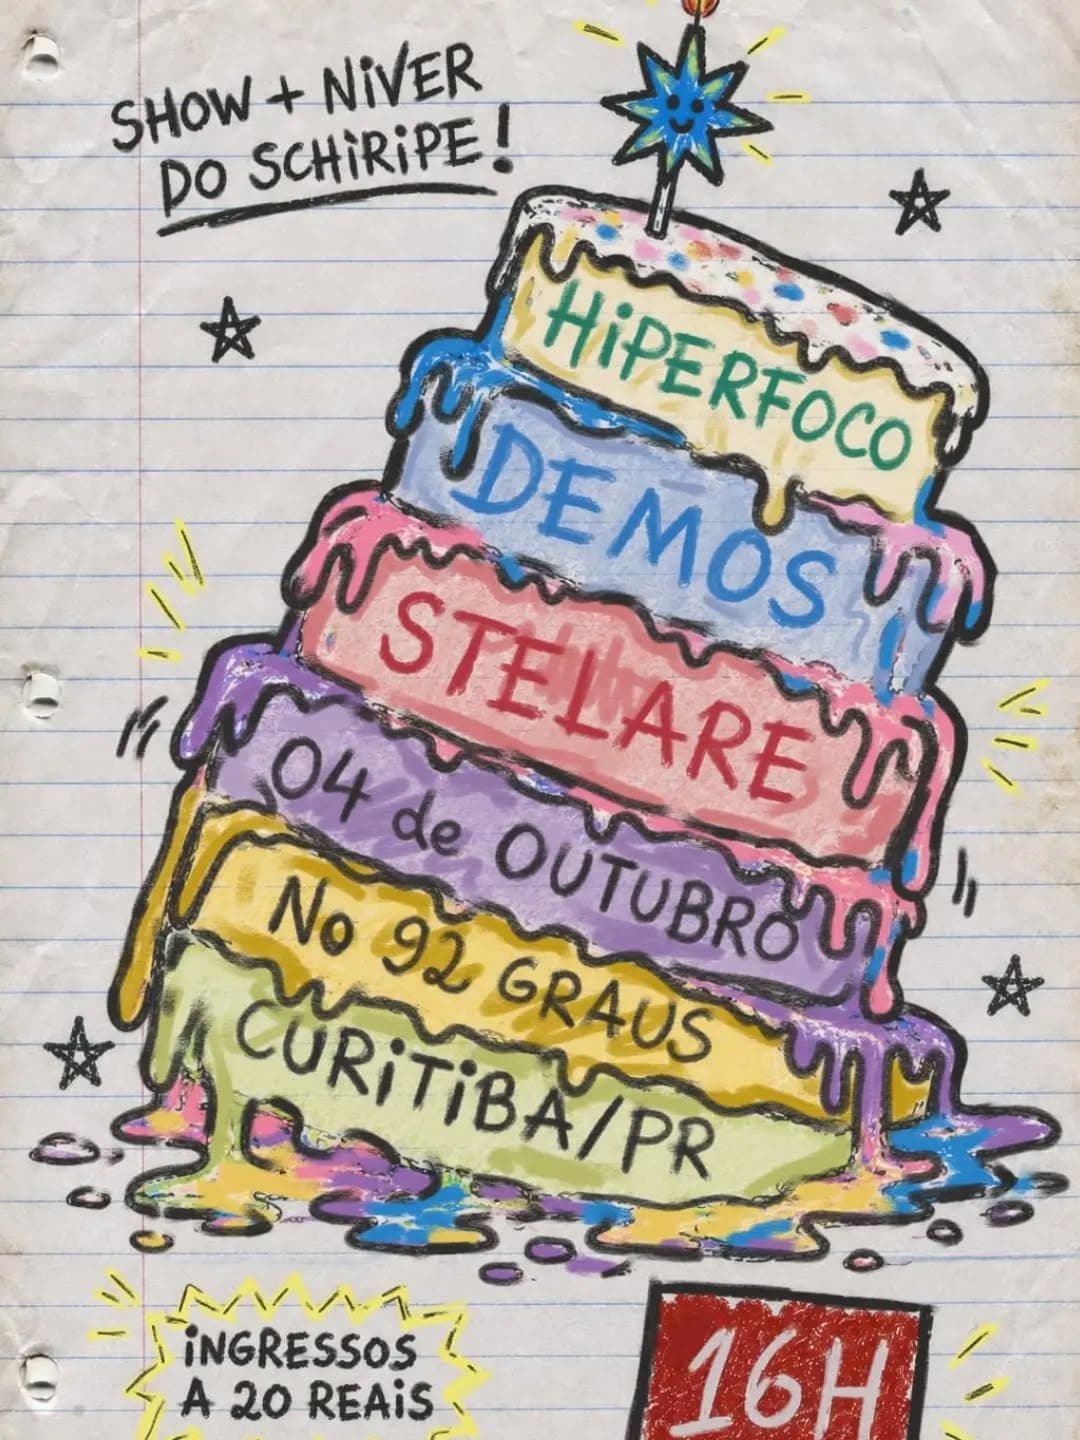 SHOW + NiVER
DO SCHiRiPE!
HiPERFOCO
DEMOS
STELARE
04 de OUTUBRO
No 92 GRAUS
CURiTiBA/PR
iNGRESSOS
A 20 REAiS
16H